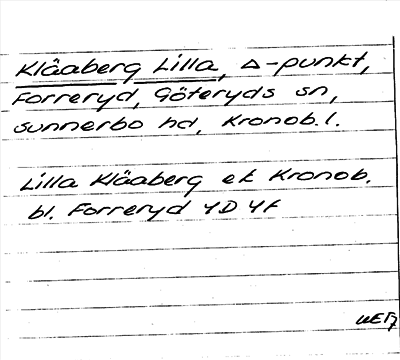 Klåaberg Lilla, Δ-punkt,
Forreryd, Göteryds sn,
Sunnerbo hd, Kronob. l.
Lilla Klåaberg ek Kronob.
bl. Forreryd 4D 4f